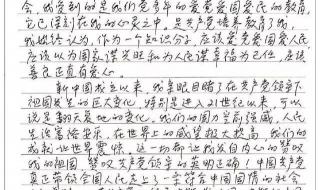 会，我受到的是我们党多年的爱党爱国爱民的教育，
它已深刻在我的心灵之中，是共产党培养教育了我，
我始终认为，作为一个知识分子，应该爱党爱国爱人民，
应该以为国家谋兴旺和为人民谋幸福为己任，应该
善良正直有爱心。
新中国成立以来，我亲眼目睹了在共产党领导下
祖国发生的巨大变化，特别是进入21世纪以来，可以
说是翻天复地的变化，我们的国力空前强盛，人民
生活富裕安乐，在世界上的威望极大提高，我们的
成就让世界震惊，这一切都让我发自内心的赞叹
我的祖国，赞叹共产党领导的英明正确！中国共产党
真正带领全国人民走上了一条符合中国国情的社会